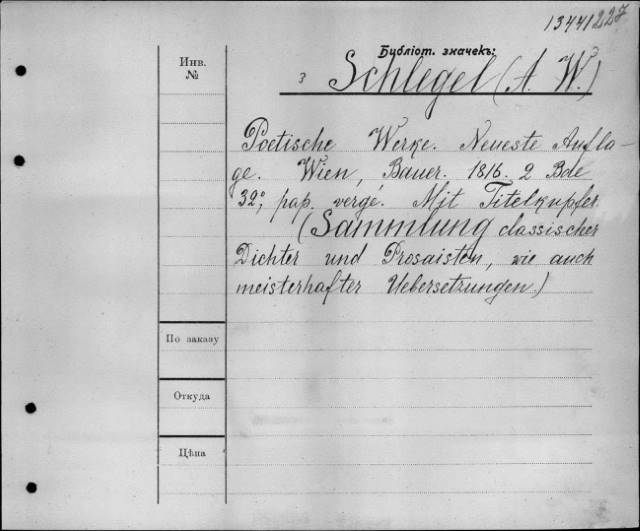 13441227
Бубліот. значекъ:
Инв.
№
3 Schlegel (A. W.)
Poetische Werke. Neueste Aufla-
ge. Wien, Bauer. 1816. 2 Bde
32°, pap. vergé. Mit Titelkupfer.
(Sammlung classischer
Dichter und Prosaisten, wie auch
meisterhafter Uebersetzungen.)
По заказу
Откуда
Цѣна